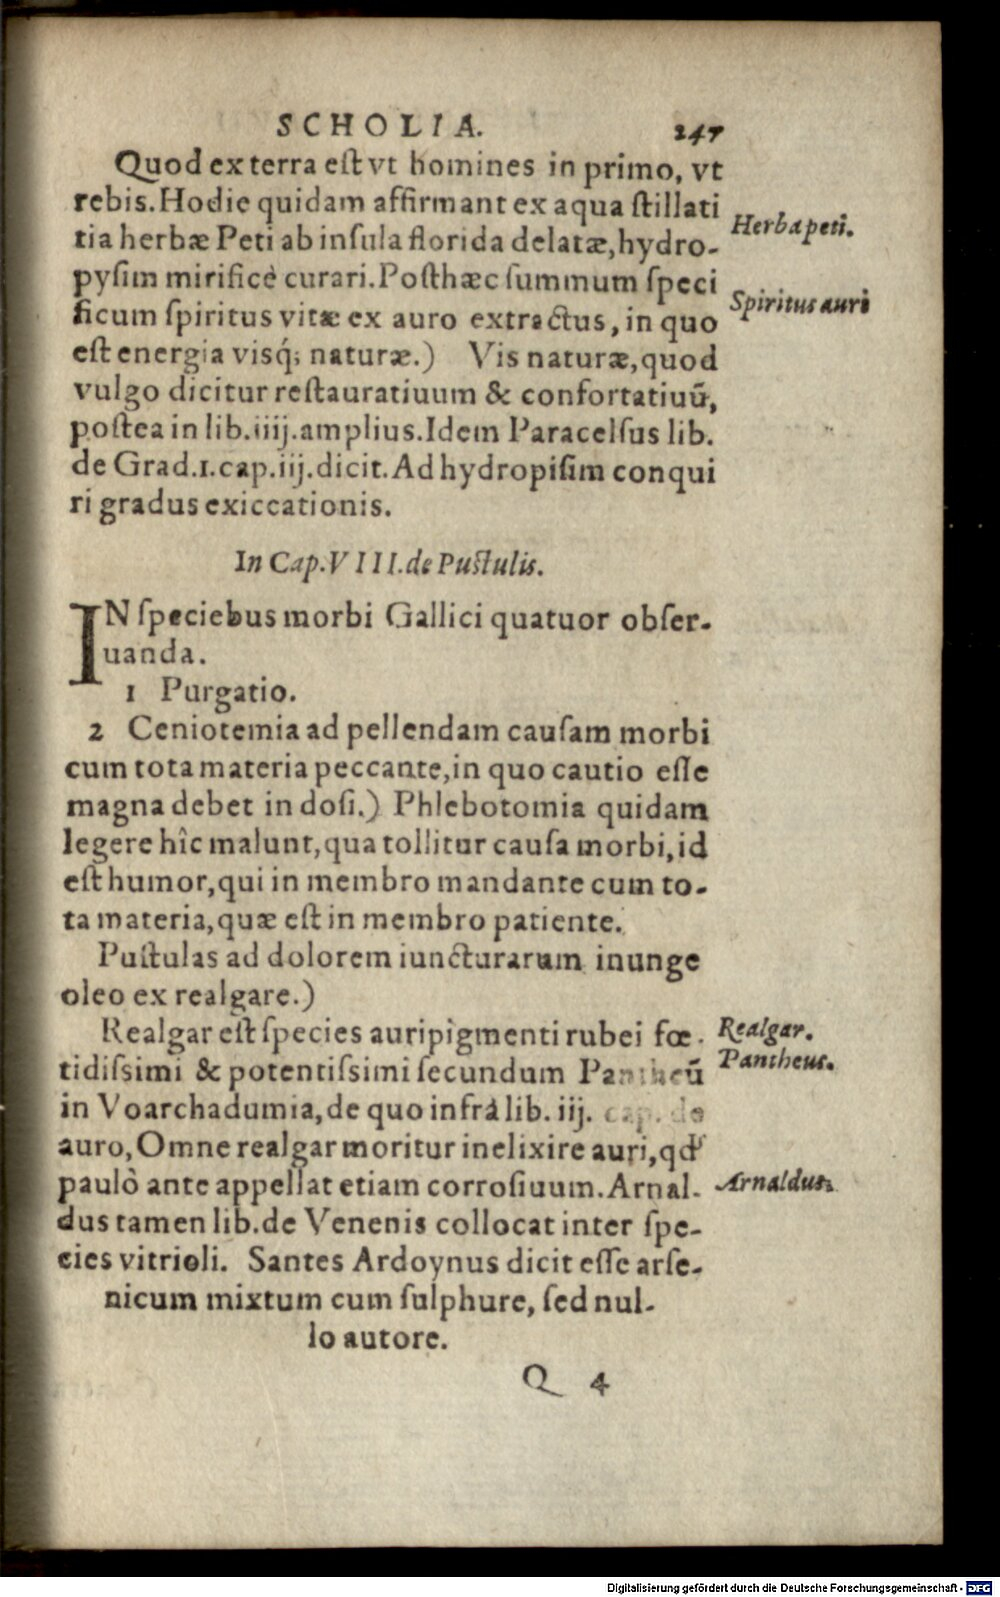 SCHOLIA. 247
Quod ex terra eſt vt homines in primo, vt
rebis. Hodie quidam affirmant ex aqua ſtillati
tia herbæ Peti ab inſula florida delatæ, hydro-
Herba peti.
pyſim mirificè curari. Poſthæc ſummum ſpeci
ficum ſpiritus vitæ ex auro extractus, in quo
Spiritus auri
eſt energia visq́; naturæ.) Vis naturæ, quod
vulgo dicitur reſtauratiuum & confortatiuũ,
poſtea in lib. iiij. amplius. Idem Paracelſus lib.
de Grad. 1. cap. iij. dicit. Ad hydropiſim conqui
ri gradus exiccationis.
In Cap. VIII. de Puſtulis.
IN ſpeciebus morbi Gallici quatuor obſer-
uanda.
1 Purgatio.
2 Ceniotemia ad pellendam cauſam morbi
cum tota materia peccante, in quo cautio eſſe
magna debet in doſi.) Phlebotomia quidam
legere hîc malunt, qua tollitur cauſa morbi, id
eſt humor, qui in membro mandante cum to-
ta materia, quæ eſt in membro patiente.
Puſtulas ad dolorem iuncturarum inunge
oleo ex realgare.)
Realgar eſt ſpecies auripigmenti rubei fœ-
Realgar.
tidiſsimi & potentiſsimi ſecundum Pantheũ
Pantheus.
in Voarchadumia, de quo infrà lib. iij. cap. de
auro, Omne realgar moritur in elixire auri, qď
paulò ante appellat etiam corroſiuum. Arnal-
Arnaldus.
dus tamen lib. de Venenis collocat inter ſpe-
cies vitrioli. Santes Ardoynus dicit eſſe arſe-
nicum mixtum cum ſulphure, ſed nul-
lo autore.
Q 4
Digitalisierung gefördert durch die Deutsche Forschungsgemeinschaft - DFG